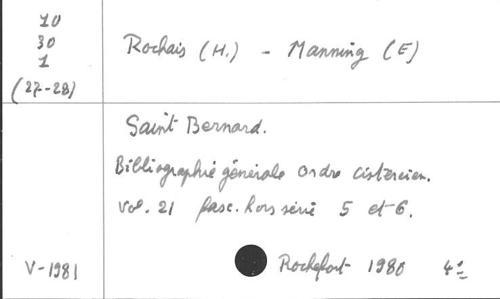 10
30
1
(27-28)
Rochais (H.) - Manning (E)
Saint Bernard.
Bibliographie générale ordre cistercien.
Vol. 21 fasc. hors série 5 et 6.
V-1981
Rochefort 1980 4°